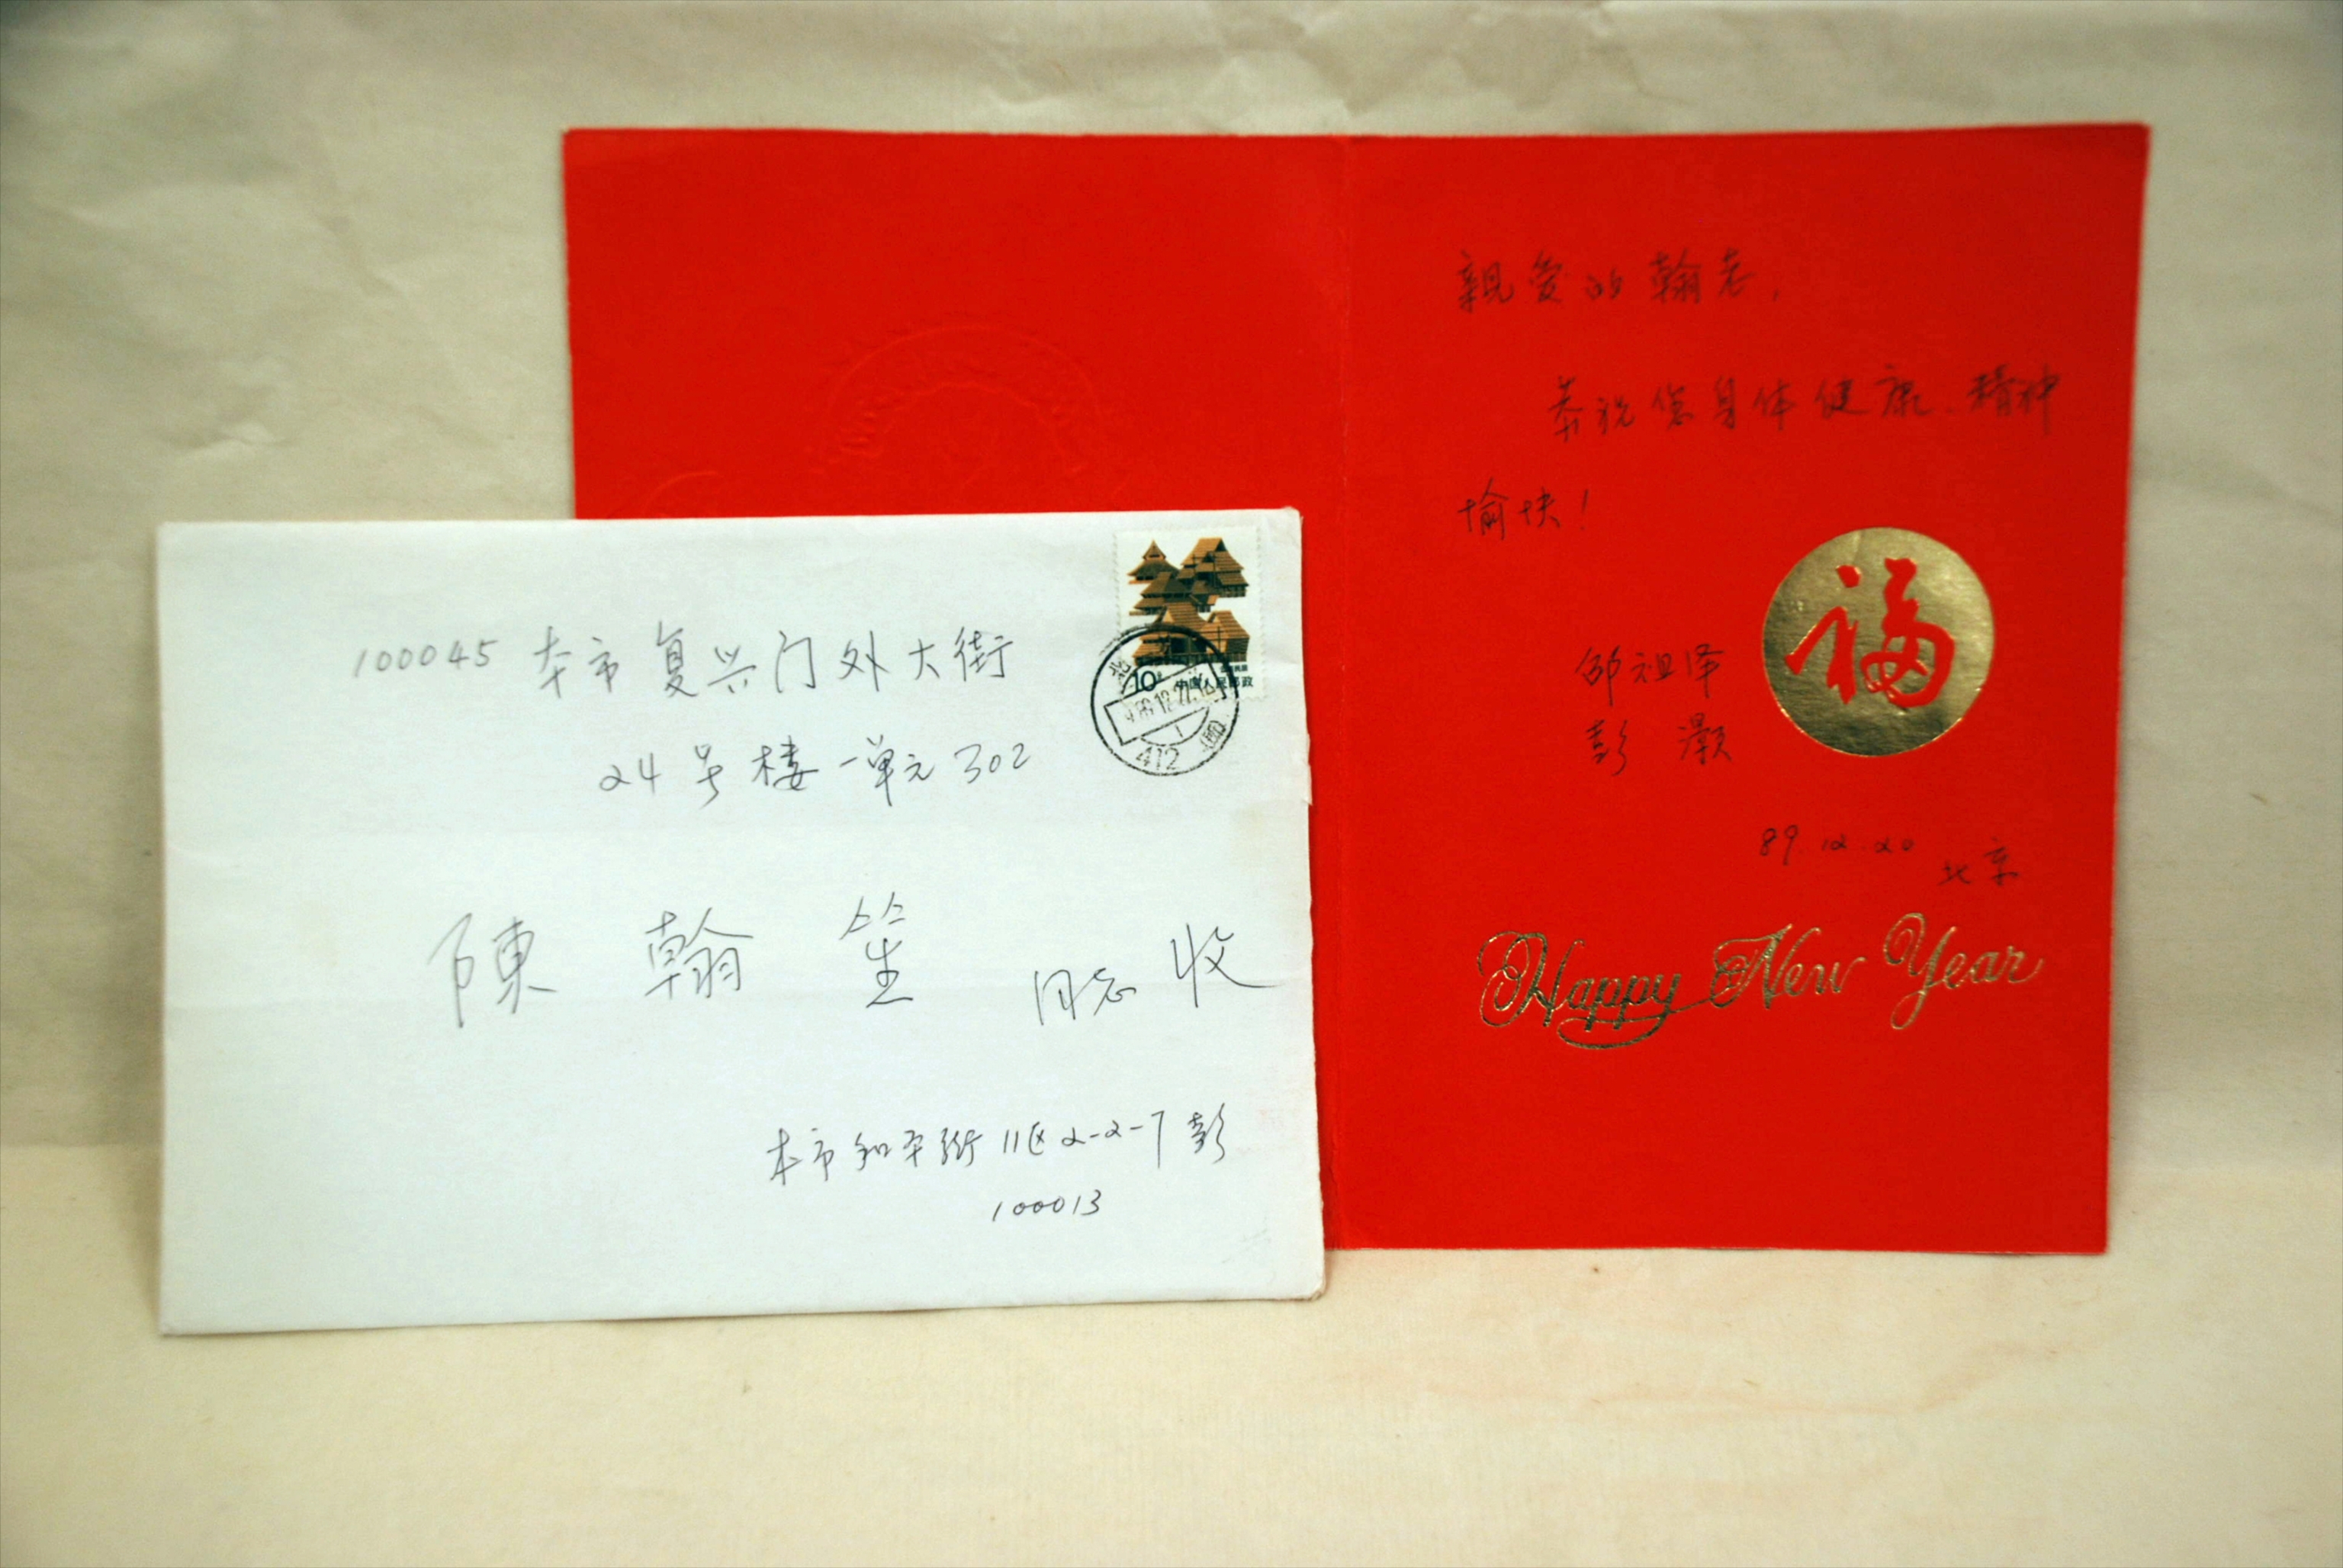 100045 本市复兴门外大街
24号楼一单元302
陳翰笙 同志 收
本市和平街11区2-2-7彭
100013
10分 中国人民邮政
北京
412
亲爱的翰老，
恭祝您身体健康、精神
愉快！
福
邵祖泽
彭灏
89.12.20
北京
Happy New Year